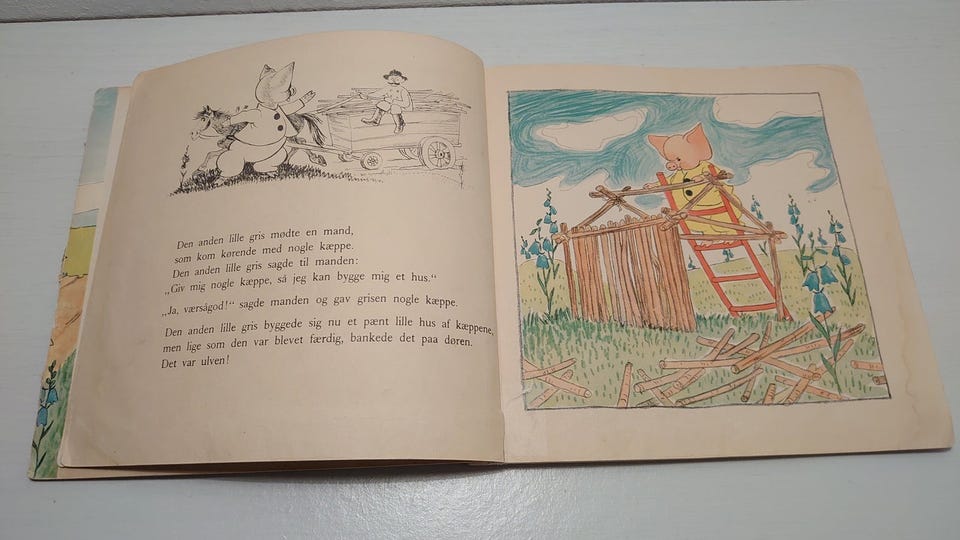 Den anden lille gris mødte en mand,
som kom kørende med nogle kæppe.
Den anden lille gris sagde til manden:
„Giv mig nogle kæppe, så jeg kan bygge mig et hus.“
„Ja, værsågod!“ sagde manden og gav grisen nogle kæppe.
Den anden lille gris byggede sig nu et pænt lille hus af kæppene,
men lige som den var blevet færdig, bankede det paa døren.
Det var ulven!